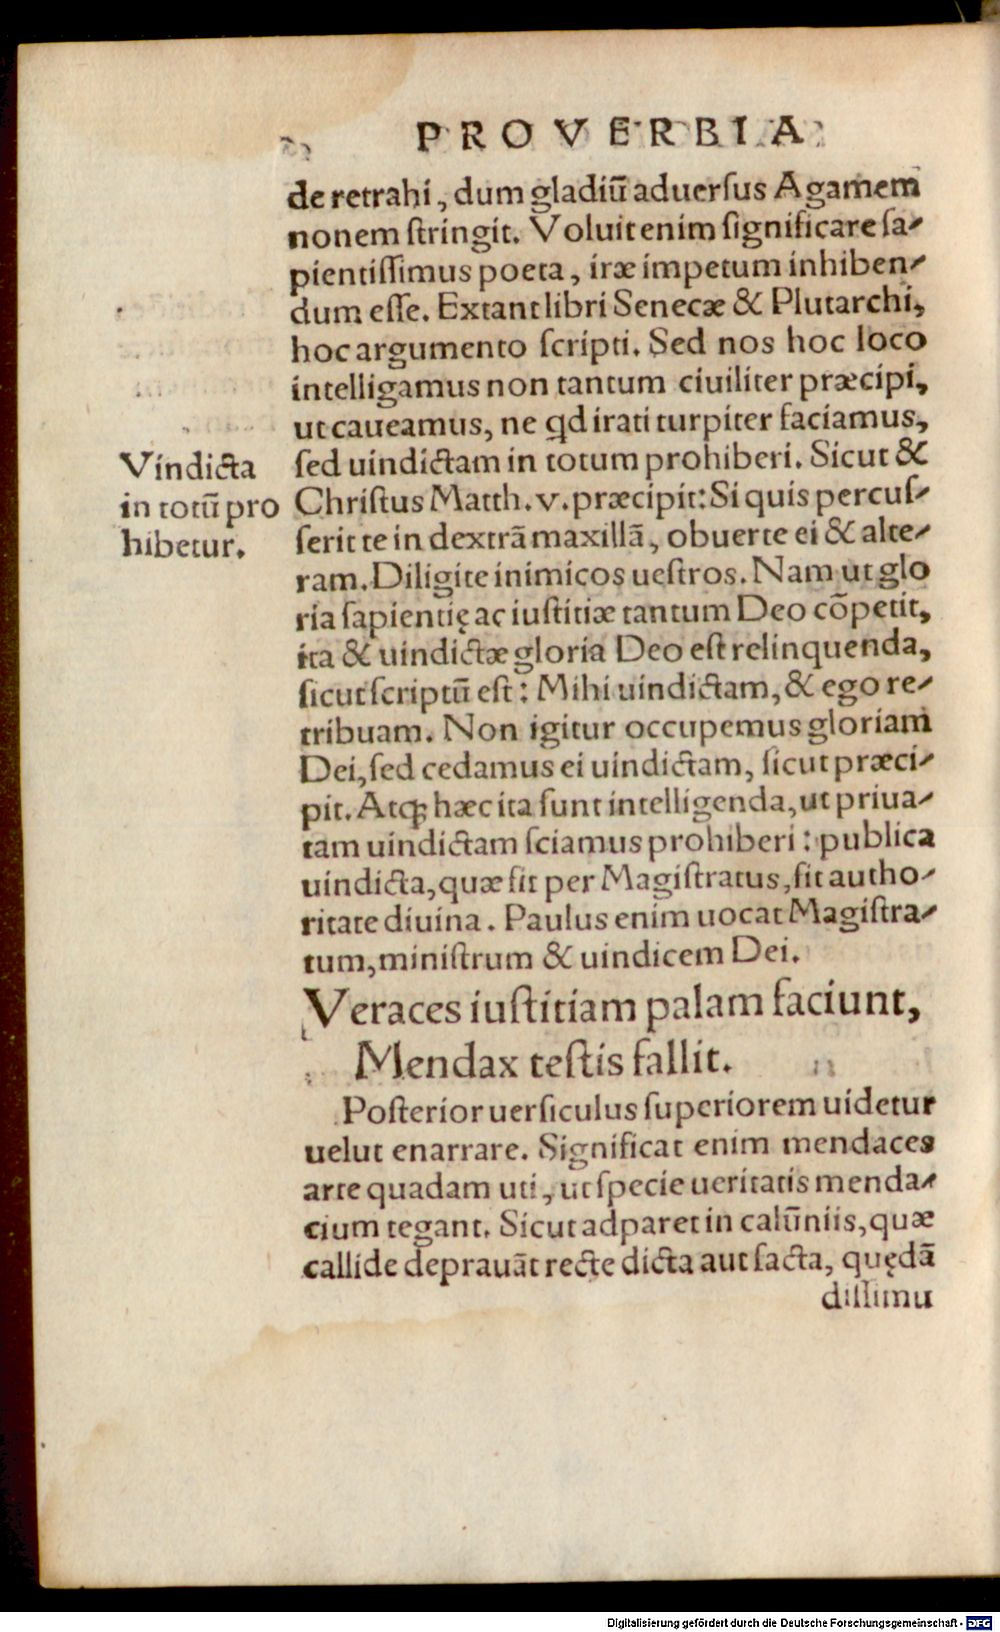 PROVERBIA
de retrahi, dum gladiũ aduersus Agamem
nonem stringit. Voluit enim significare sa-
pientissimus poeta, iræ impetum inhiben-
dum esse. Extant libri Senecæ & Plutarchi,
hoc argumento scripti. Sed nos hoc loco
intelligamus non tantum ciuiliter præcipi,
ut caueamus, ne qd irati turpiter faciamus,
sed uindictam in totum prohiberi. Sicut &
Christus Matth. v. præcipit: Si quis percus-
serit te in dextrã maxillã, obuerte ei & alte-
ram. Diligite inimicos uestros. Nam ut glo
ria sapientię ac iustitiæ tantum Deo cõpetit,
ita & uindictæ gloria Deo est relinquenda,
sicut scriptũ est: Mihi uindictam, & ego re-
tribuam. Non igitur occupemus gloriam
Dei, sed cedamus ei uindictam, sicut præci-
pit. Atq; hæc ita sunt intelligenda, ut priua-
tam uindictam sciamus prohiberi: publica
uindicta, quæ fit per Magistratus, fit autho-
ritate diuina. Paulus enim uocat Magistra-
tum, ministrum & uindicem Dei.
Vindicta
in totũ pro
hibetur.
Veraces iustitiam palam faciunt,
Mendax testis fallit.
Posterior uersiculus superiorem uidetur
uelut enarrare. Significat enim mendaces
arte quadam uti, ut specie ueritatis menda-
cium tegant. Sicut adparet in calũniis, quæ
callide deprauãt recte dicta aut facta, quędã
dissimu
Digitalisierung gefördert durch die Deutsche Forschungsgemeinschaft - DFG